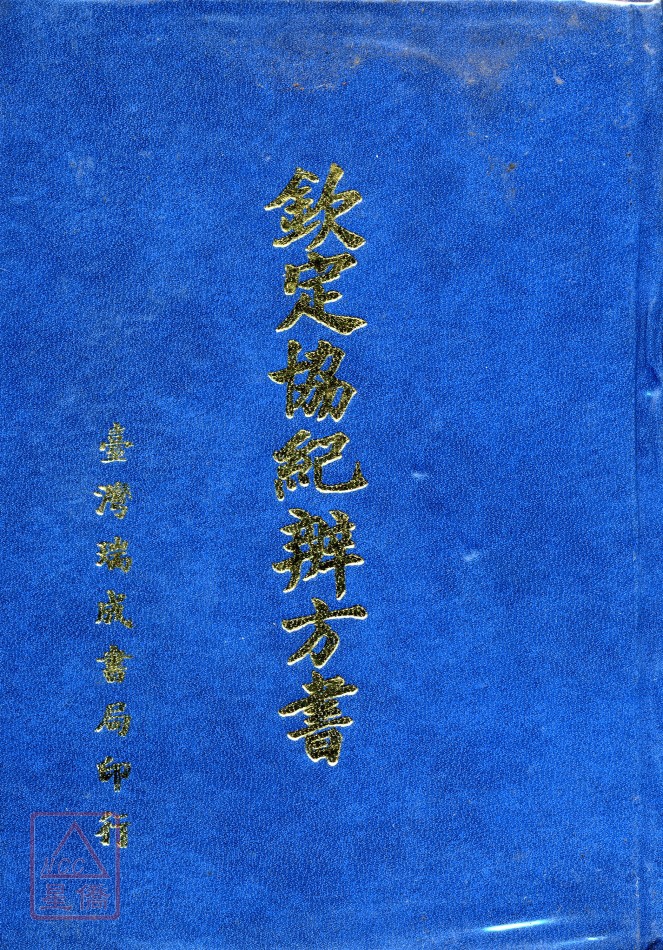 欽定協紀辨方書
臺灣瑞成書局印行